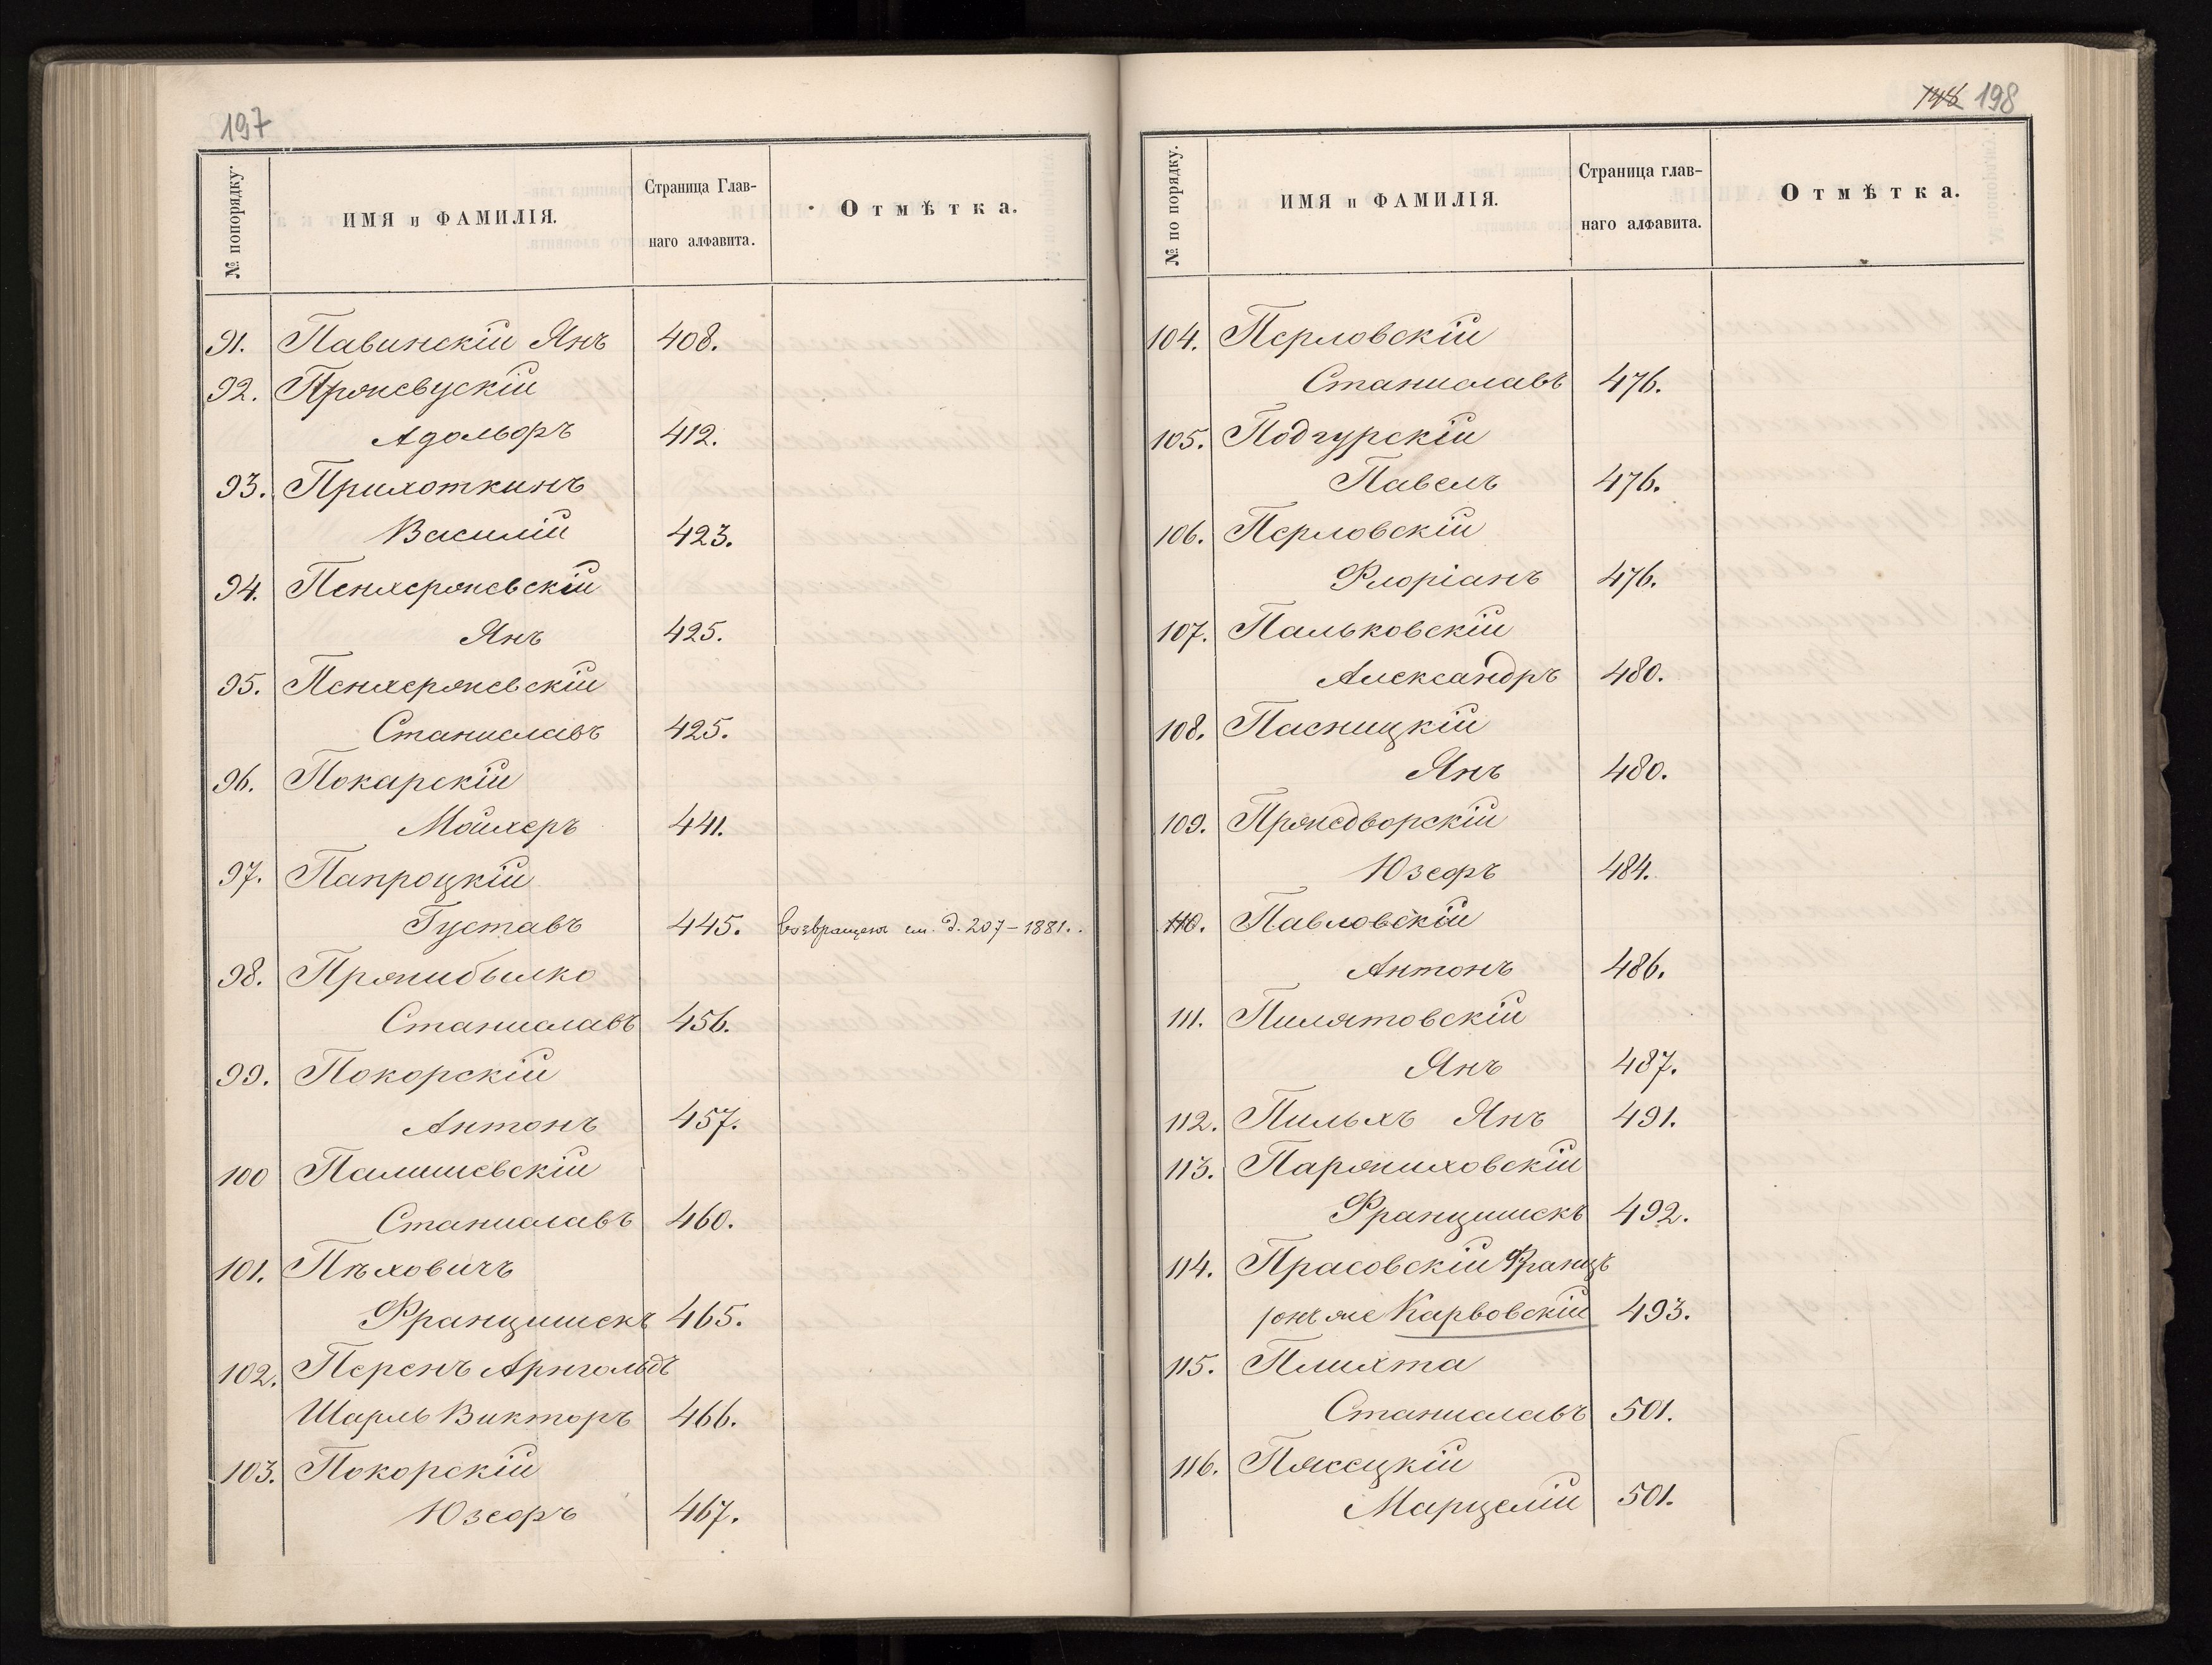 197
№ попорядку.
ИМЯ и ФАМИЛІЯ.
Страница Глав-
наго алфавита.
Отмѣтка.
91. Павинскій Янъ 408.
92. Пржевускій
Адольфъ 412.
93. Прихоткинъ
Василій 423.
94. Пенхержевскій
Янъ 425.
95. Пенхержевскій
Станиславъ 425.
96. Покарскій
Мойхеръ 441.
97. Папроцкій
Густавъ 445. возвращенъ см. д. 207–1881.
98. Пржибылко
Станиславъ 456.
99. Покорскій
Антонъ 457.
100 Палишевскій
Станиславъ 460.
101. Пѣховичъ
Францишекъ 465.
102. Перенъ Арнгольдъ
Шарль Викторъ 466.
103. Покорскій
Юзефъ 467.
148 198
№ по порядку.
ИМЯ и ФАМИЛІЯ.
Страница глав-
наго алфавита.
Отмѣтка.
104. Перловскій
Станиславъ 476.
105. Подгурскій
Павелъ 476.
106. Перловскій
Флоріанъ 476.
107. Пальковскій
Александръ 480.
108. Пасницкій
Янъ 480.
109. Пржедворскій
Юзефъ 484.
110. Павловскій
Антонъ 486.
111. Пилятовскій
Янъ 487.
112. Пильхъ Янъ 491.
113. Паржиховскій
Францишекъ 492.
114. Прасовскій Францъ
онъ же Карвовскій 493.
115. Плихта
Станиславъ 501.
116. Пясецкій
Марцелій 501.